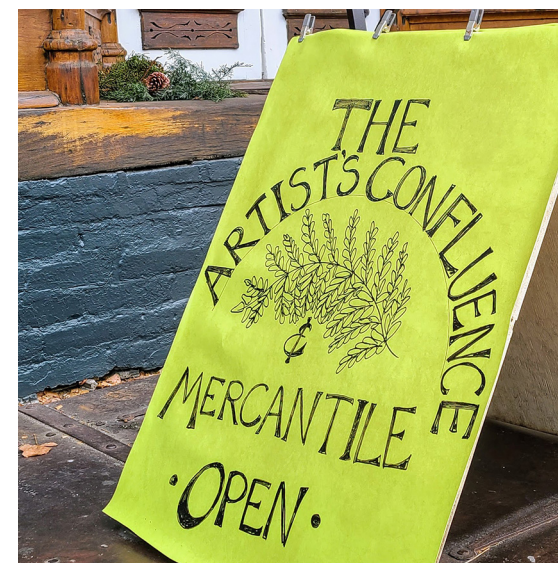 THE
ARTIST'S CONFLUENCE
&
MERCANTILE
·OPEN·